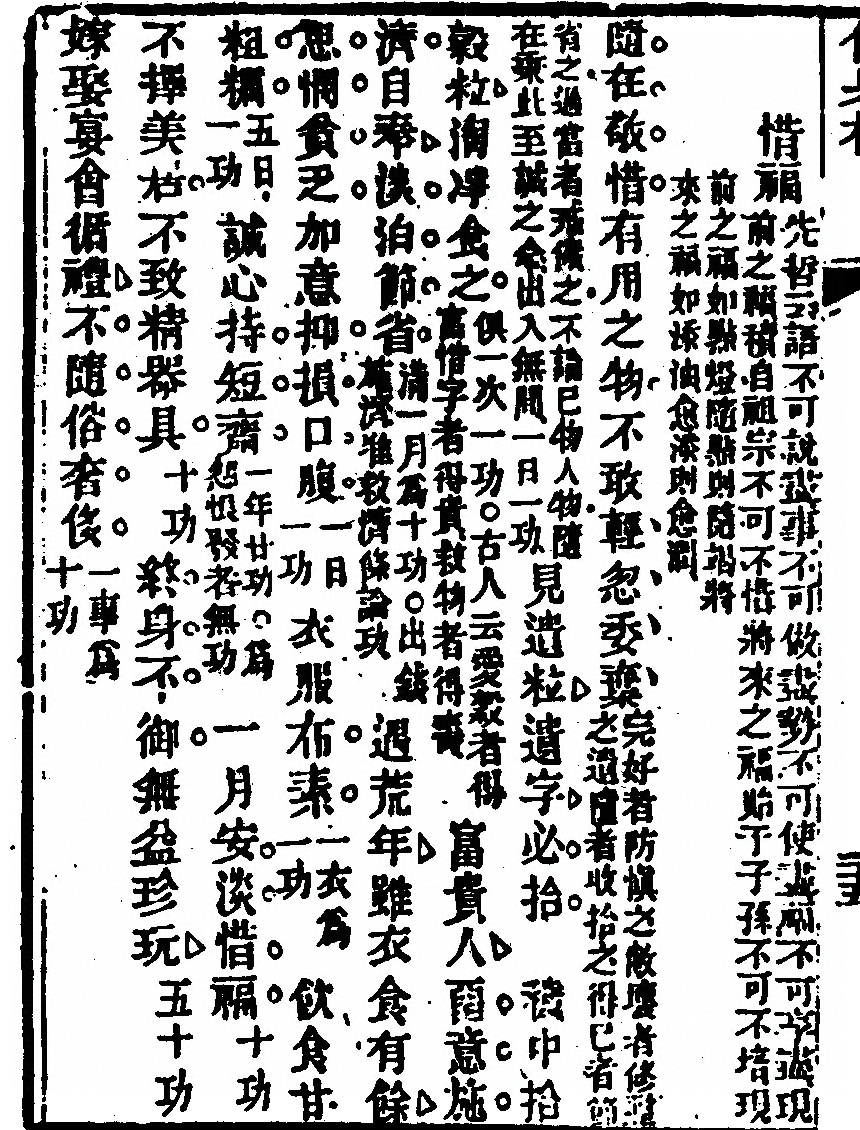 惜福
先哲云語不可說盡事不可做盡勢不可使盡福不可享盡現
前之福積自祖宗不可不惜將來之福貽于子孫不可不培現
前之福如點燈隨點則隨竭將
來之福如添油愈添則愈潤
隨在敬惜有用之物不敢輕忽委棄
完好者防慎之敝壞者修
之遺者收拾之得已者節
省之過當者之不論已物人物隨
在秉此至誠之念出入無間一日一功
見遺粒遺字必拾
穢中拾
穀粒淘淨食之
俱一次一功○古人云愛穀者得
富惜字者得貴救物者得壽
富貴人留意施
濟自奉淡泊節省
滿一月為十功○出錢
施濟維救濟條論功
遇荒年雖衣食有餘
思憫貧乏加意抑損口腹
一日
一功
衣服布素
一衣為
一功
飲食甘
粗糲
五日
一功
誠心持短齋
一年廿功○為
怨恨發者無功
一月安淡惜福
十功
不擇美
不致精器具
十功
終身不御無益珍玩
五十功
嫁娶宴會循禮不隨俗奢侈
一事為
十功